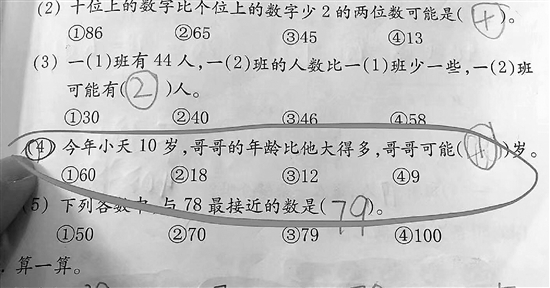 (2) 十位上的数字比个位上的数字少2的两位数可能是( )。
①86 ②65 ③45 ④13
(3) 一(1)班有44人,一(2)班的人数比一(1)班少一些,一(2)班
可能有(2)人。
①30 ②40 ③46 ④58
(4) 今年小天10岁,哥哥的年龄比他大得多,哥哥可能( )岁。
①60 ②18 ③12 ④9
(5) 下列各数中,与78最接近的数是(79)。
①50 ②70 ③79 ④100
. 算一算。